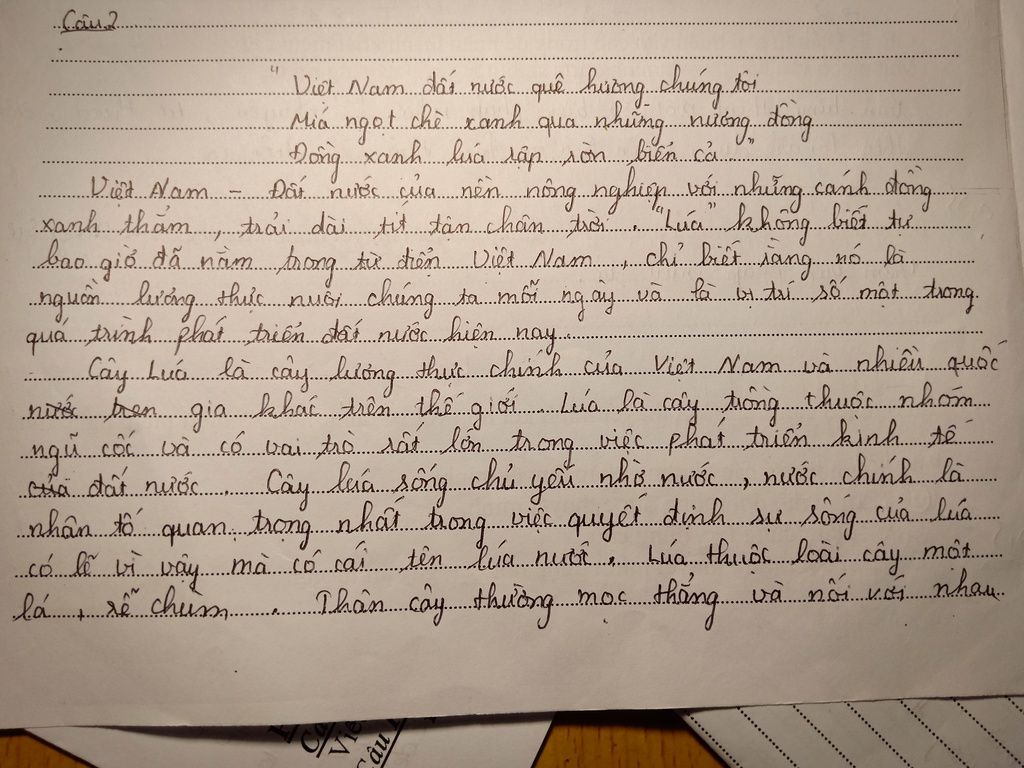 Câu 2
" Việt Nam đất nước quê hương chúng tôi
Mía ngọt chè xanh qua những nương đồng
Đồng xanh lúa rập rờn biển cả "
Việt Nam - Đất nước của nền nông nghiệp với những cánh đồng
xanh thẳm, trải dài tít tận chân trời. "Lúa" không biết tự
bao giờ đã nằm trong từ điển Việt Nam, chỉ biết rằng nó là
nguồn lương thực nuôi chúng ta mỗi ngày và là vị trí số một trong
quá trình phát triển đất nước hiện nay.
Cây Lúa là cây lương thực chính của Việt Nam và nhiều quốc
gia khác trên thế giới. Lúa là cây trồng thuộc nhóm
ngũ cốc và có vai trò rất lớn trong việc phát triển kinh tế
của đất nước. Cây lúa sống chủ yếu nhờ nước, nước chính là
nhân tố quan trọng nhất trong việc quyết định sự sống của lúa
có lẽ vì vậy mà có cái tên lúa nước. Lúa thuộc loài cây một
lá, rễ chùm. Thân cây thường mọc thẳng và nối với nhau
Viế
Câu